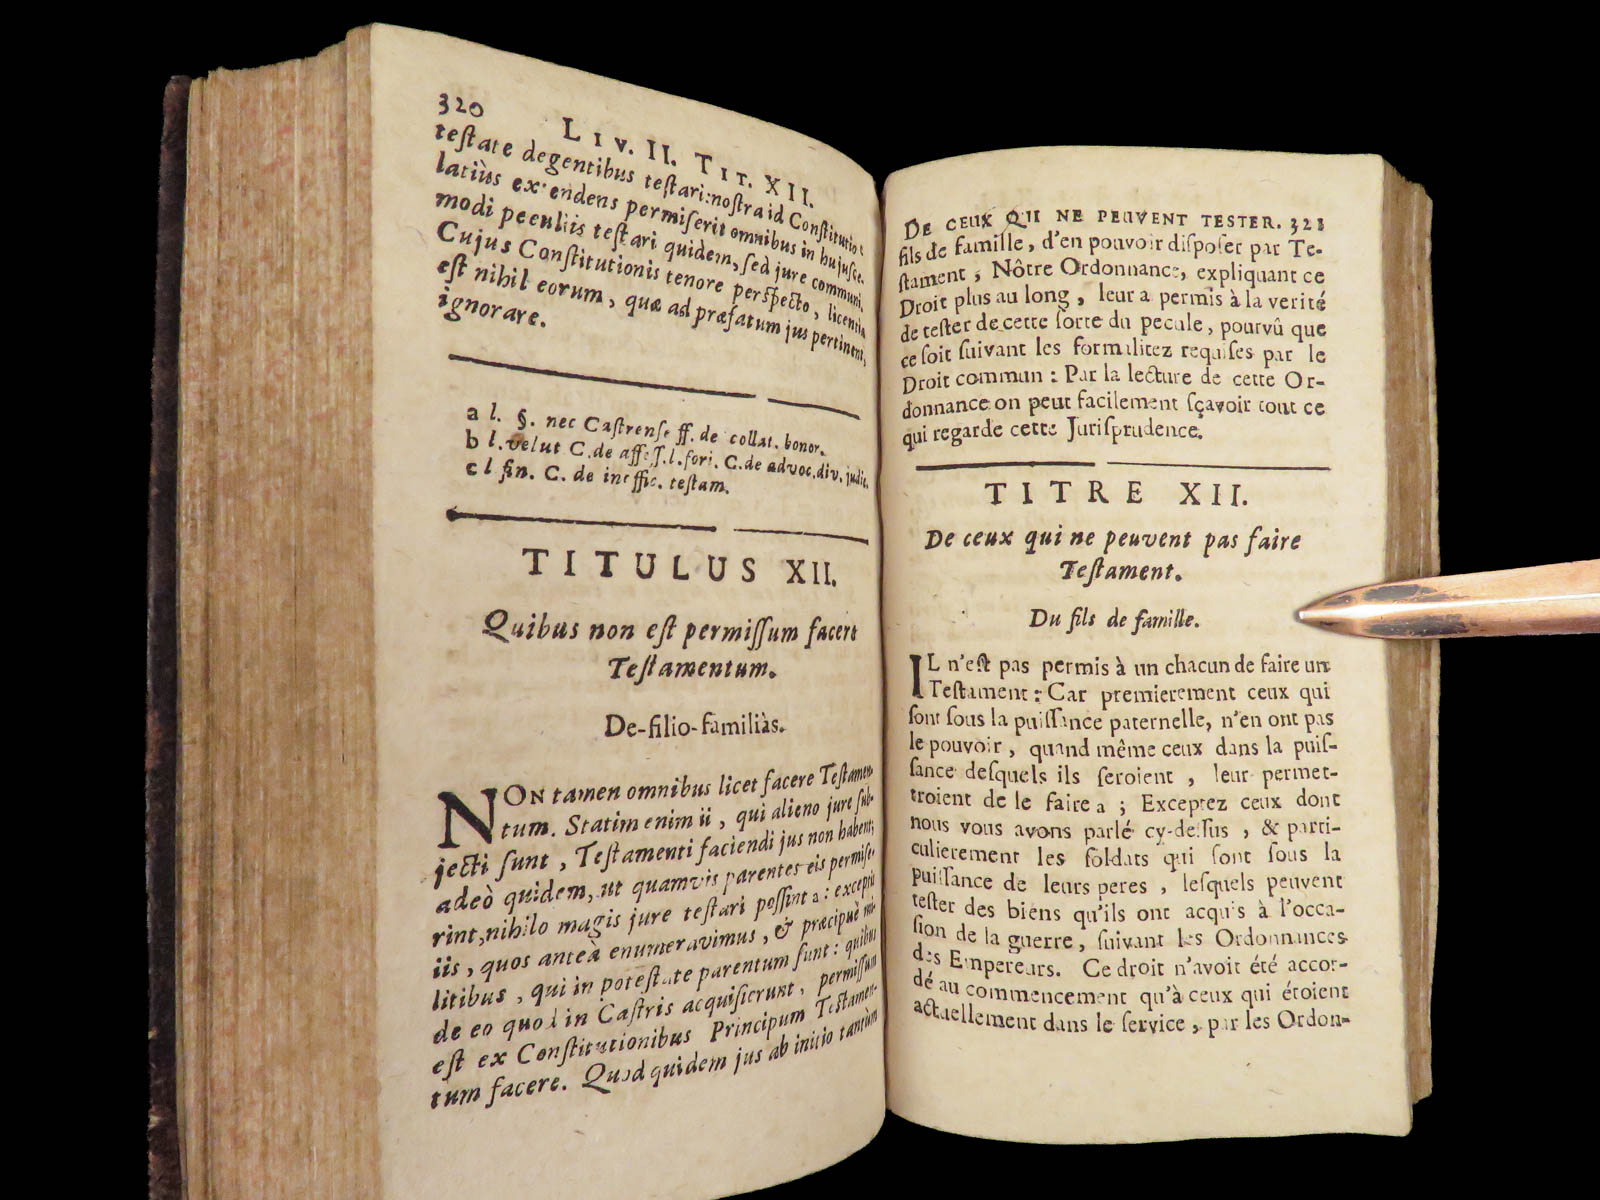 320
LIV. II. TIT. XII.
teſtate degentibus teſtari: noſtra id Conſtitutio
latiùs extendens permiſerit omnibus in hujuſce-
modi peculiis teſtari quidem, ſed jure communi.
Cujus Conſtitutionis tenore perſpecto, licentia
eſt nihil eorum, quæ ad præfatum jus pertinent,
ignorare.
a l. §. nec Caſtrenſe ff. de collat. bonor.
b l. velut C. de aſſeſſ. l. fori. C. de advoc. div. judic.
c l fin. C. de inoffic. teſtam.
TITULUS XII.
Quibus non eſt permiſſum facere
Teſtamentum.
De-filio-familiàs.
NON tamen omnibus licet facere Teſtamen-
tum. Statim enim ii, qui alieno jure ſub-
jecti ſunt, Teſtamenti faciendi jus non habent;
adeò quidem, ut quamvis parentes eis permiſe-
rint, nihilo magis jure teſtari poſſint a: exceptis
iis, quos anteà enumeravimus, & præcipuè mi-
litibus, qui in poteſtate parentum ſunt: quibus
de eo quod in Caſtris acquiſierunt, permiſſum
eſt ex Conſtitutionibus Principum Teſtamen-
tum facere. Quod quidem jus ab initio tantùm
DE CEUX QUI NE PEUVENT TESTER. 321
fils de famille, d'en pouvoir diſpoſer par Te-
ſtament, Nôtre Ordonnance, expliquant ce
Droit plus au long, leur a permis à la verité
de teſter de cette ſorte du pecule, pourvû que
ce ſoit ſuivant les formalitez requiſes par le
Droit commun: Par la lecture de cette Or-
donnance on peut facilement ſçavoir tout ce
qui regarde cette Juriſprudence.
TITRE XII.
De ceux qui ne peuvent pas faire
Teſtament.
Du fils de famille.
IL n'eſt pas permis à un chacun de faire un
Teſtament: Car premierement ceux qui
ſont ſous la puiſſance paternelle, n'en ont pas
le pouvoir, quand même ceux dans la puiſ-
ſance deſquels ils ſeroient, leur permet-
troient de le faire a; Exceptez ceux dont
nous vous avons parlé cy-deſſus, & parti-
culierement les ſoldats qui ſont ſous la
puiſſance de leurs peres, leſquels peuvent
teſter des biens qu'ils ont acquis à l'occa-
ſion de la guerre, ſuivant les Ordonnances
des Empereurs. Ce droit n'avoit été accor-
dé au commencement qu'à ceux qui étoient
actuellement dans le ſervice, par les Ordon-